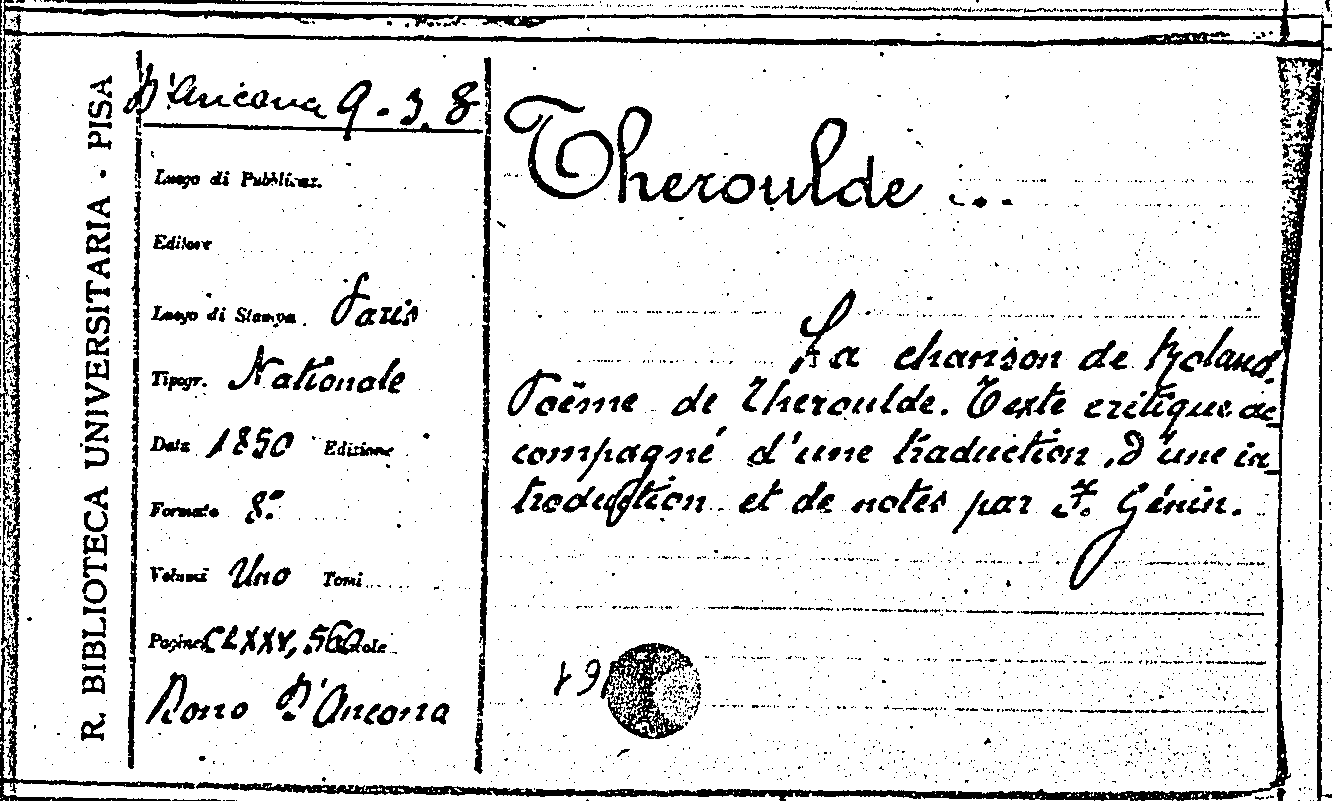 R. BIBLIOTECA UNIVERSITARIA - PISA
D'Ancona 9-3.8
Luogo di Pubblicaz.
Editore
Luogo di Stampa Paris
Tipogr. Nationale
Data 1850 Edizione
Formato 8°
Volumi Uno Tomi
Pagine CLXXV, 560
Dono D'Ancona
Theroulde ...
La chanson de Roland.
Poëme de Theroulde. Texte critique ac_
compagné d'une traduction, d'une in_
troduction et de notes par F. Génin.